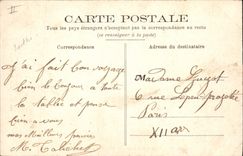 CARTE POSTALE
Tous les pays étrangers n'acceptent pas la correspondance au recto
(se renseigner à la poste)
Correspondance
Adresse du destinataire
J'ai fait bon voyage
bien le bonjour à toute
la famille et pense
bien à vous
mes meilleurs
M.
Madame Guyot
6 rue
Paris
XII arr